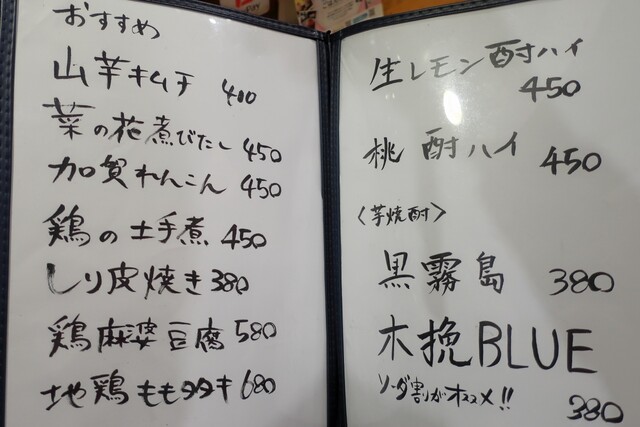 おすすめ
山芋キムチ 400
菜の花煮びたし 450
加賀れんこん 450
鶏の土手煮 450
しり皮焼き 380
鶏麻婆豆腐 580
地鶏ももタタキ 680
生レモン酎ハイ
450
桃 酎ハイ 450
〈芋焼酎〉
黒霧島 380
木挽BLUE
ソーダ割がオススメ!!
380